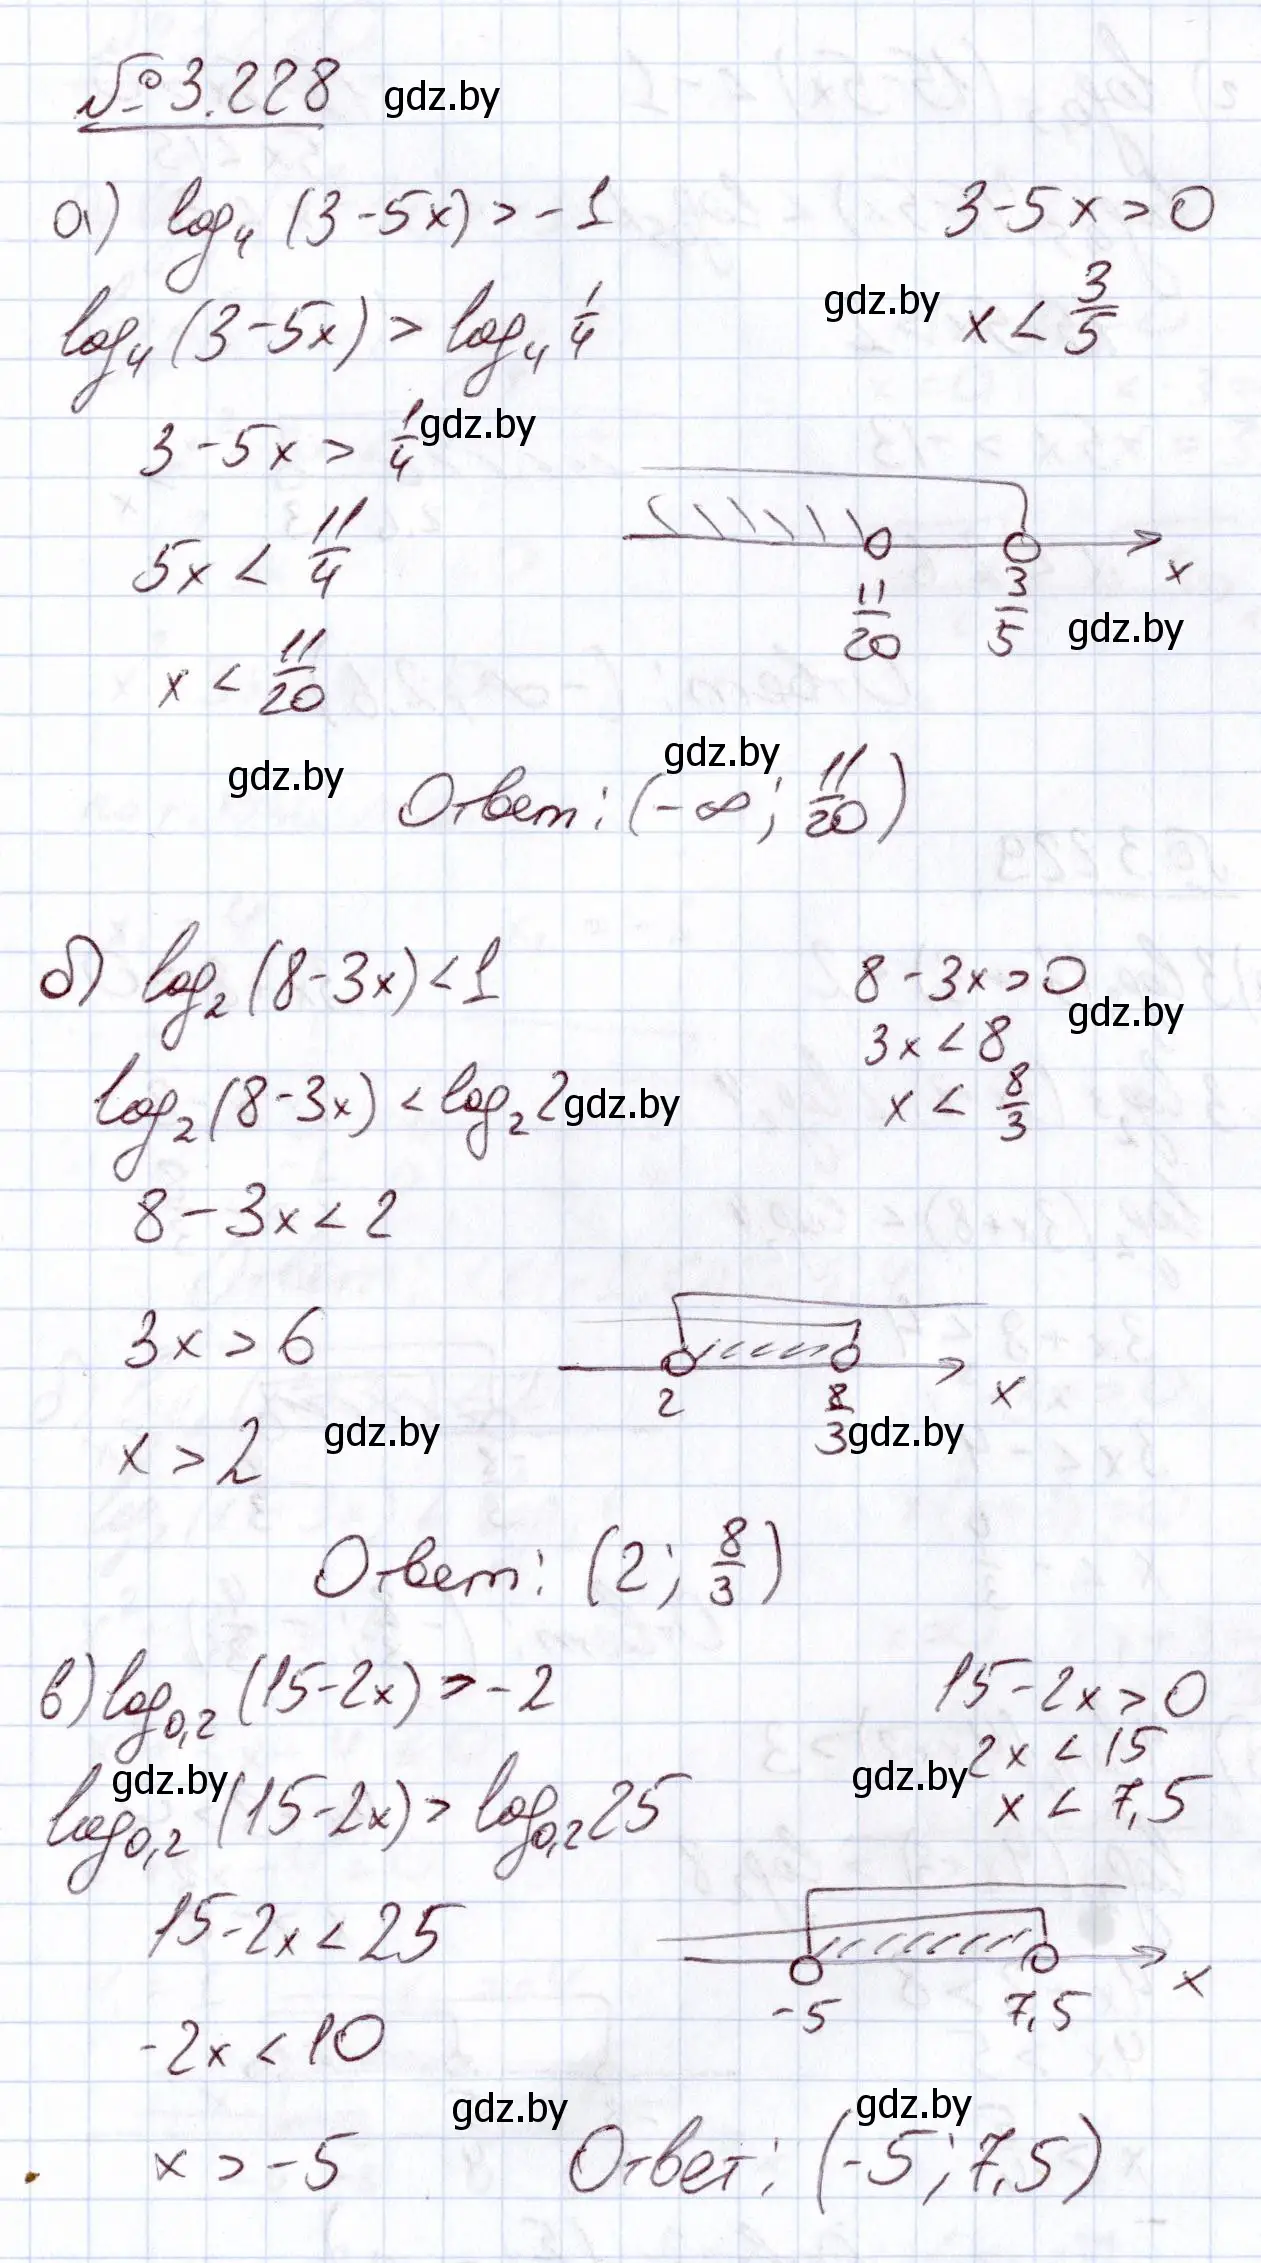 № 3.228 gdz.by
а) log₄ (3 - 5x) > -1 3 - 5x > 0
log₄ (3 - 5x) > log₄ 1/4 gdz.by x < 3/5
3 - 5x > 1/4 gdz.by
5x < 11/4 x
11/20 3/5 gdz.by
x < 11/20
gdz.by Ответ: (-∞; 11/20) gdz.by
б) log₂ (8 - 3x) < 1 8 - 3x > 0 gdz.by
3x < 8
log₂ (8 - 3x) < log₂ 2 gdz.by x < 8/3
8 - 3x < 2
3x > 6 x
2 8/3
x > 2 gdz.by gdz.by
Ответ: (2; 8/3)
в) log₀,₂ (15 - 2x) > -2 15 - 2x > 0
gdz.by gdz.by 2x < 15
log₀,₂ (15 - 2x) > log₀,₂ 25 x < 7,5
15 - 2x < 25 x
-5 7,5
-2x < 10
gdz.by gdz.by
x > -5 Ответ: (-5; 7,5)